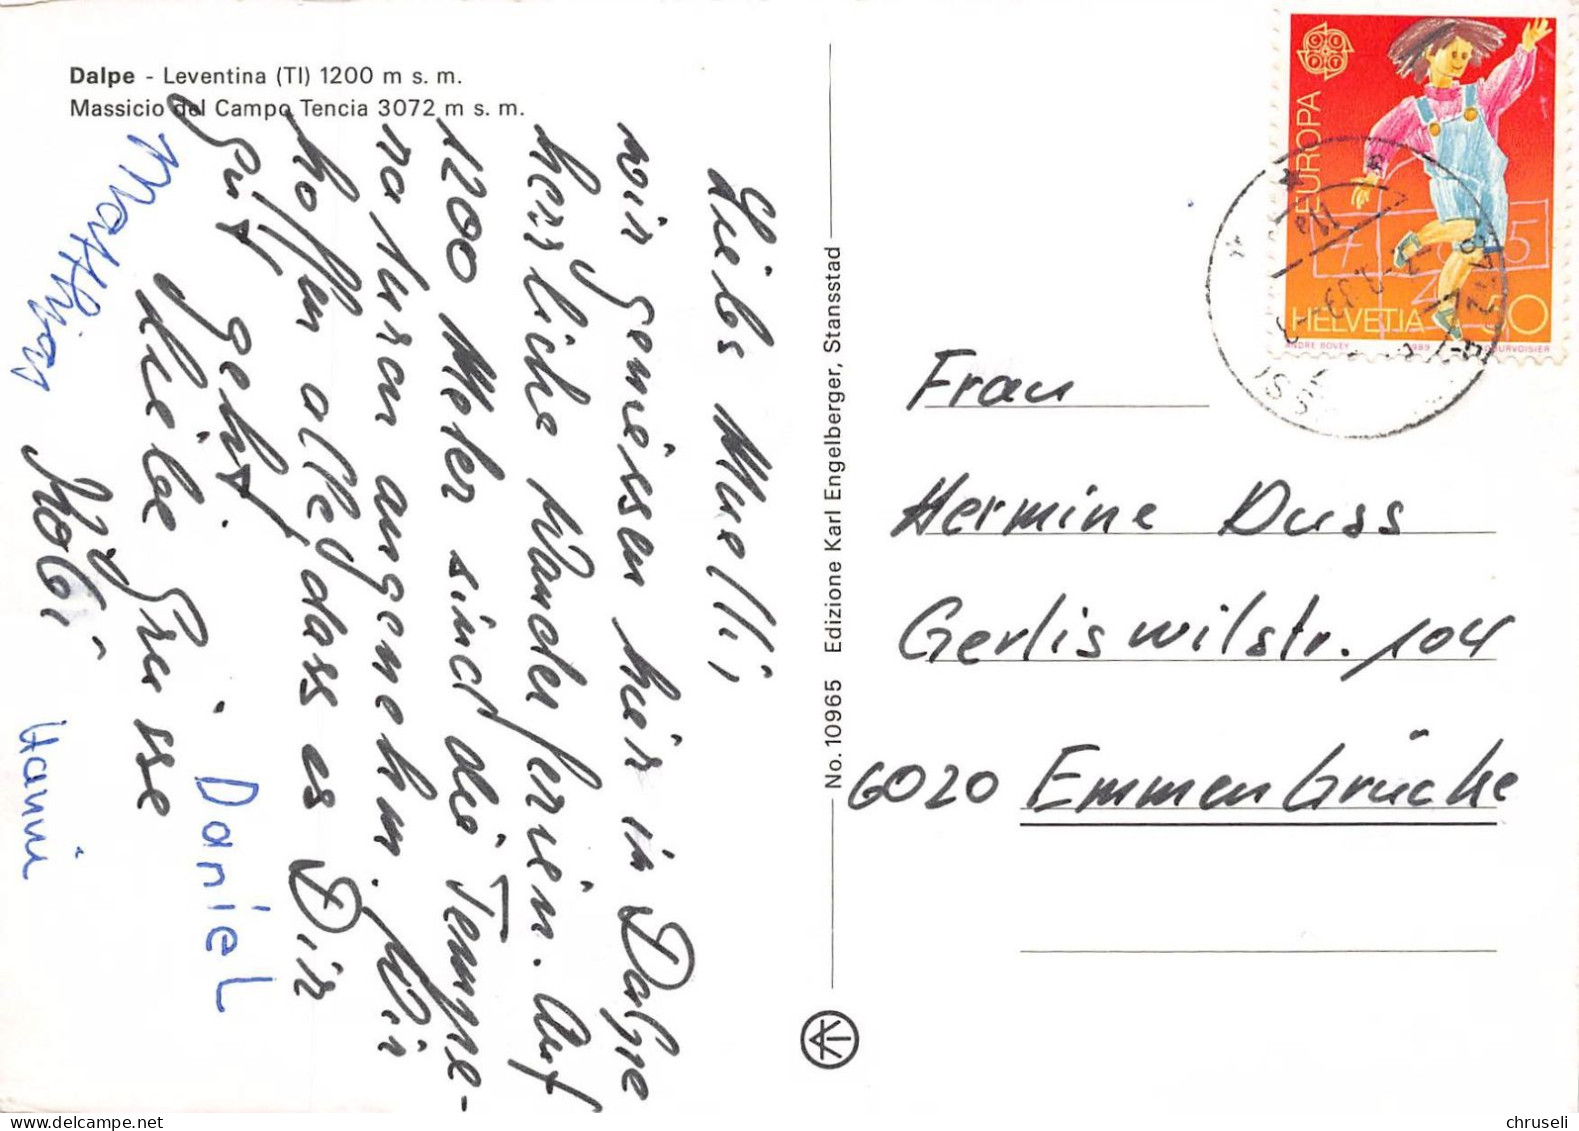 Dalpe - Leventina (TI) 1200 m s. m.
Massicio del Campo Tencia 3072 m s. m.
Liebs Muelli,
wir geniessen hier in Dalpe
herrliche Wanderferien. Auf
1200 Meter sind die Tempe-
raturen angenehm. Wir
hoffen alle, dass es Dir
gut geht.
Liebe Grüsse
Köbi
Matthias
Daniel
Hanni
No. 10965 Edizione Karl Engelberger, Stansstad
EUROPA
CEPT
HELVETIA 50
ANDRE BOVEY 1989 COURVOISIER
Frau
Hermine Duss
Gerliswilstr. 104
6020 Emmenbrücke
chruseli